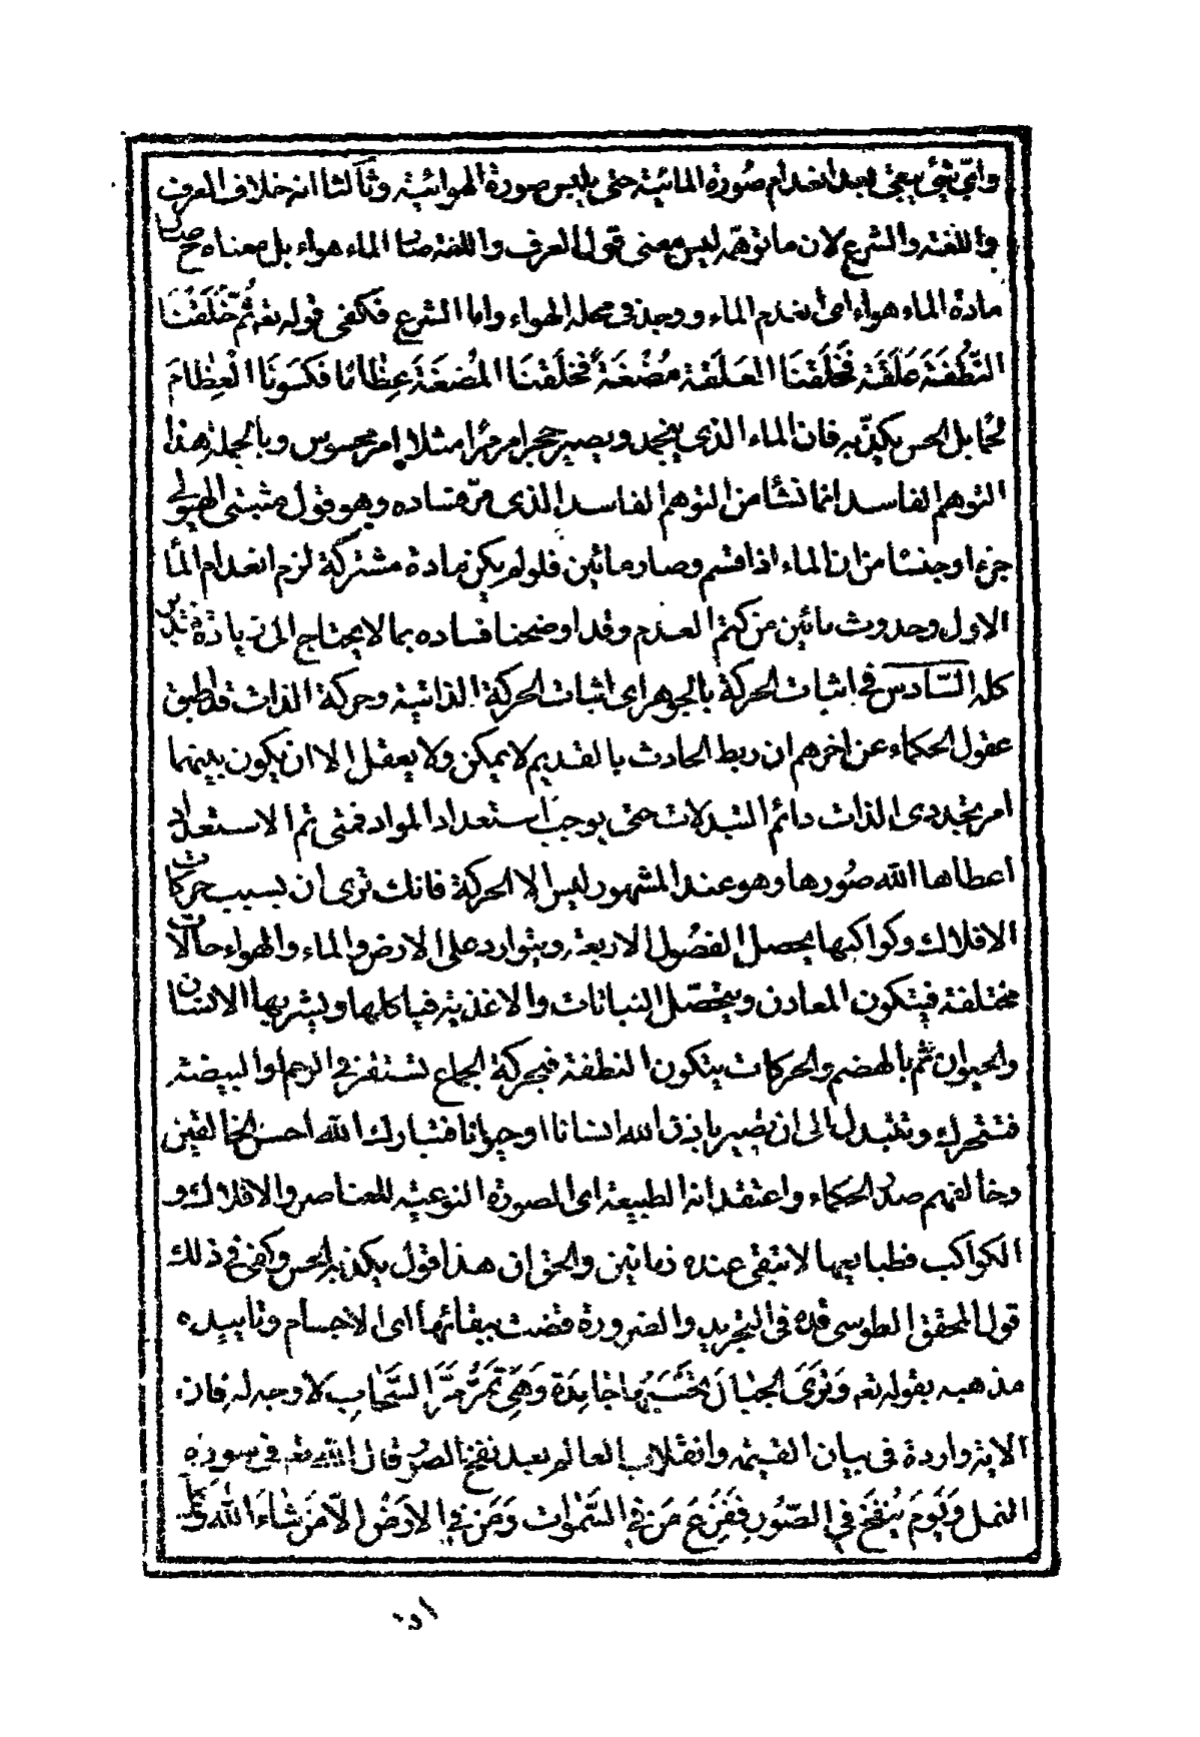 واىّ شئ يبقى بعد انعدام صُورة المائيّة حتى يلبس صورة الهوائيّة وثآلثا انه خلاف العرف
واللغة والشرع لان ما توهّمه ليس معنى قول العرف واللغة صار الماء هواء بل معناه ح صار
مادة الماء هواء اى انعدم الماء ووجد فى محله الهواء واما الشرع فكفى قوله تعه ثُمَّ خَلَقْنَا
النُّطْفَةَ عَلَقَةً فَخَلَقْنَا العَلَقَةَ مُضْغَةً فَخَلَقْنَا المُضغَةَ عِظَامًا فَكَسَونَا الْعِظَامَ
لَحْمًا بل الحس يكذّبه فان الماء الذى ينجمد ويصير حجرا مرمرًا مثلا امر محسوس وبالجملة هذا
التوهم الفاسد انما نشأ من التوهم الفاسد الذى مرّ فساده وهو قول مثبتى الهيولى
جزءا وجنسًا من ان الماء اذا قسم وصار مائين فلو لم يكن مادة مشتركة لزم انعدام الماء
الاول وحدوث مائين من كتم العدم وقد اوضحنا فساده بما لا يحتاج الى زيادة فتدبّر
كله السّادس فى اثبات الحركة بالجوهر اى اثبات الحركة الذاتية وحركة الذات قد اطبق
عقول الحكماء عن اخرهم ان ربط الحادث بالقديم لا يمكن ولا يعقل الا ان يكون بينهما
امر تجددى الذات دائم التبدلات حتى يوجب استعداد المواد فمتى تم الاستعداد
اعطاها الله صُورها وهو عند المشهور ليس الا الحركة فانك ترى ان بسبب حركات
الافلاك وكواكبها يحصل الفصُول الاربعة ويتوارد على الارض والماء والهواء حالات
مختلفة فيتكون المعادن ويتحصّل النباتات والاغذية فياكلها ويشربها الانسان
والحيوان ثم بالهضم والحركات يتكون النطفة فبحركة الجماع تستقر فى الرحم او البيضة
فتتحرك وتتبدل الى ان تصير باذن الله انسانا او حيوانا فتبارك الله احسن الخالقين
وخالفهم صدر الحكماء واعتقد انه الطبيعة اى الصورة النوعيّه للعناصر والافلاك و
الكواكب فطبايعها لا تبقى عنده زمانين والحق ان هذا قول يكذبه الحس وكفى فى ذلك
قول المحقق الطوسى قده فى التجريد والضرورة قضت ببقائها اى الاجسام وتاييده
مذهبه بقوله تعه وَتَرَى الجِبَالَ تَحْسَبُهَا جَامِدَةً وَهِىَ تَمُرُّ مَرَّ السَّحَابِ لا وجه له فان
الاية واردة فى بيان القيٰمة وانقلاب العالم بعد نفخ الصُور قال الله تعه فى سورة
النمل وَيَومَ يُنْفَخُ فِى الصُّورِ فَفَزِعَ مَن فِى السَّمٰوات وَمَن فِى الاَرضِ اِلّا مَن شَاءَ الله وَ